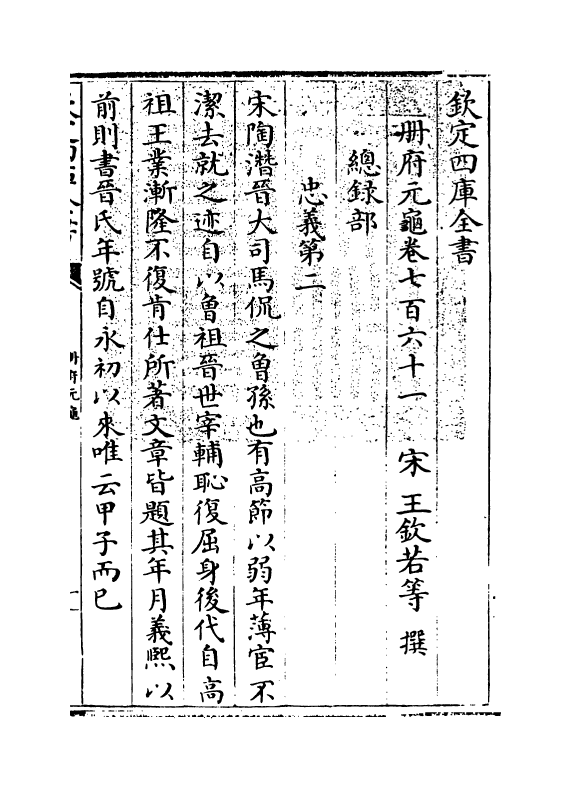 欽定四庫全書
冊府元龜卷七百六十一　宋　王欽若等　撰
總錄部
忠義第二
宋陶潛晉大司馬侃之曾孫也有高節以弱年薄宦不
潔去就之迹自以曾祖晉世宰輔恥復屈身後代自高
祖王業漸隆不復肯仕所著文章皆題其年月義熙以
前則書晉氏年號自永初以來唯云甲子而已
冊府元龜